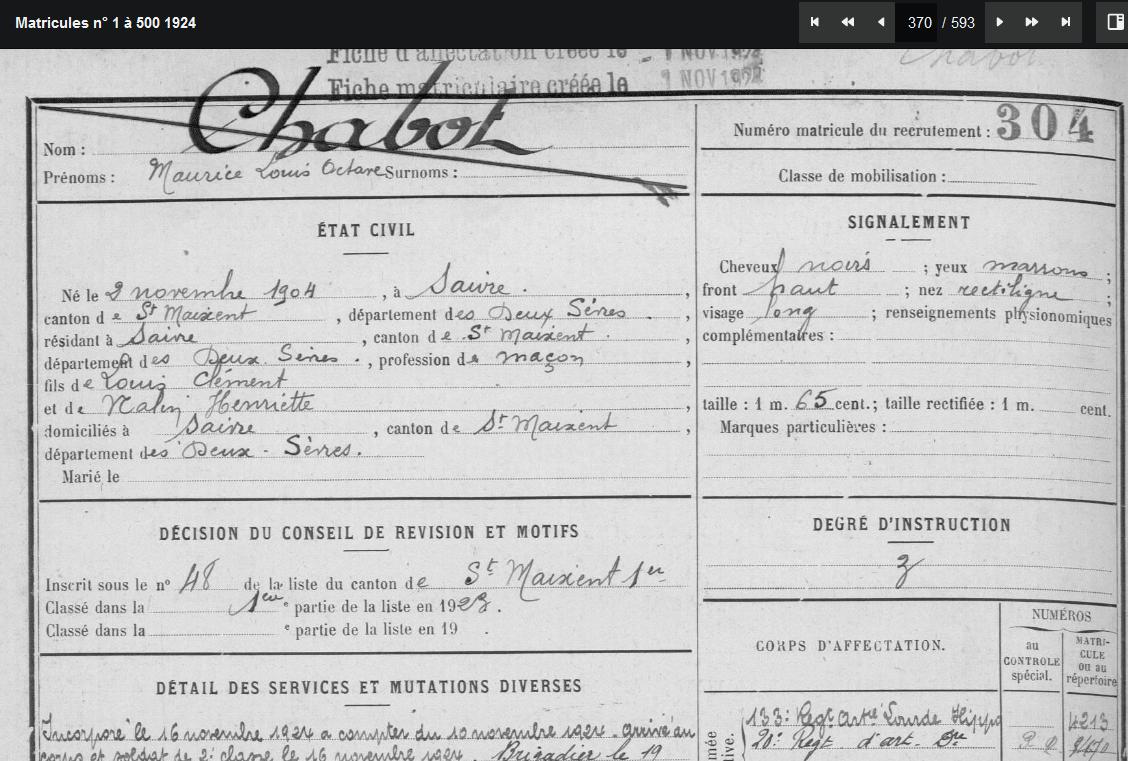 Matricules n° 1 à 500 1924
370 / 593
Fiche d'affectation créée le - 1 NOV 19
Chabot
Fiche matriculaire créée le 1 NOV 19
Nom : Chabot
Numéro matricule du recrutement : 304
Prénoms : Maurice Louis Octave Surnoms :
Classe de mobilisation :
ÉTAT CIVIL
Né le 2 novembre 1904, à Saivre.,
canton de St Maixent, département des Deux Sèvres.,
résidant à Saivre, canton de St Maixent.,
département des Deux. Sèvres., profession de maçon,
fils de Louis Clément
et de Henriette,
domiciliés à Saivre, canton de St Maixent,
département des Deux-Sèvres.
Marié le
SIGNALEMENT
Cheveux noirs ; yeux marrons ;
front haut ; nez rectiligne ;
visage long ; renseignements physionomiques
complémentaires :
taille : 1 m. 65 cent.; taille rectifiée : 1 m. cent.
Marques particulières :
DÉCISION DU CONSEIL DE REVISION ET MOTIFS
Inscrit sous le n° 48 de la liste du canton de St Maixent 1er
Classé dans la 1ere e partie de la liste en 19
Classé dans la e partie de la liste en 19 .
DEGRÉ D'INSTRUCTION
3
CORPS D'AFFECTATION.
NUMÉROS
au
CONTROLE
spécial.
MATRI-
CULE
ou au
répertoire
DÉTAIL DES SERVICES ET MUTATIONS DIVERSES
Incorporé le 16 novembre 1924 a compter du 10 novembre 1924. arrivé au
corps et soldat de 2e classe le 16 novembre 1924. Brigadier le 19
mée
ive.
133: Regt Artie Lourde Hippo 4213
20: Regt d'art. Dre